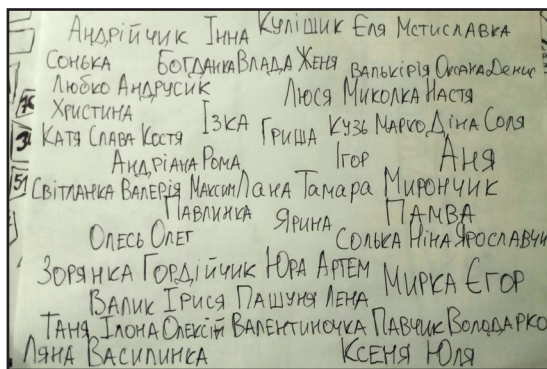 Андрійчик Інна Кулішик Еля Мстиславка
Сонька Богданка Влада Женя Валькірія Оксана Денис
Любко Андрусик Люся Миколка Настя
Христина Ізка Гриша Кузь Марко Діна Соля
Катя Слава Костя
Андріана Рома Ігор Аня
Світланка Валерія Максим Лана Тамара Мирончик
Павлинка Ярина Памва
Олесь Олег Солька Ніна Ярославчи
Зорянка Гордійчик Юра Артем Мирка Єгор
Валик Ірися Пашуня Лена
Таня Ілона Олексій Валентиночка Павчик Володарко
Ляна Василинка Ксеня Юля